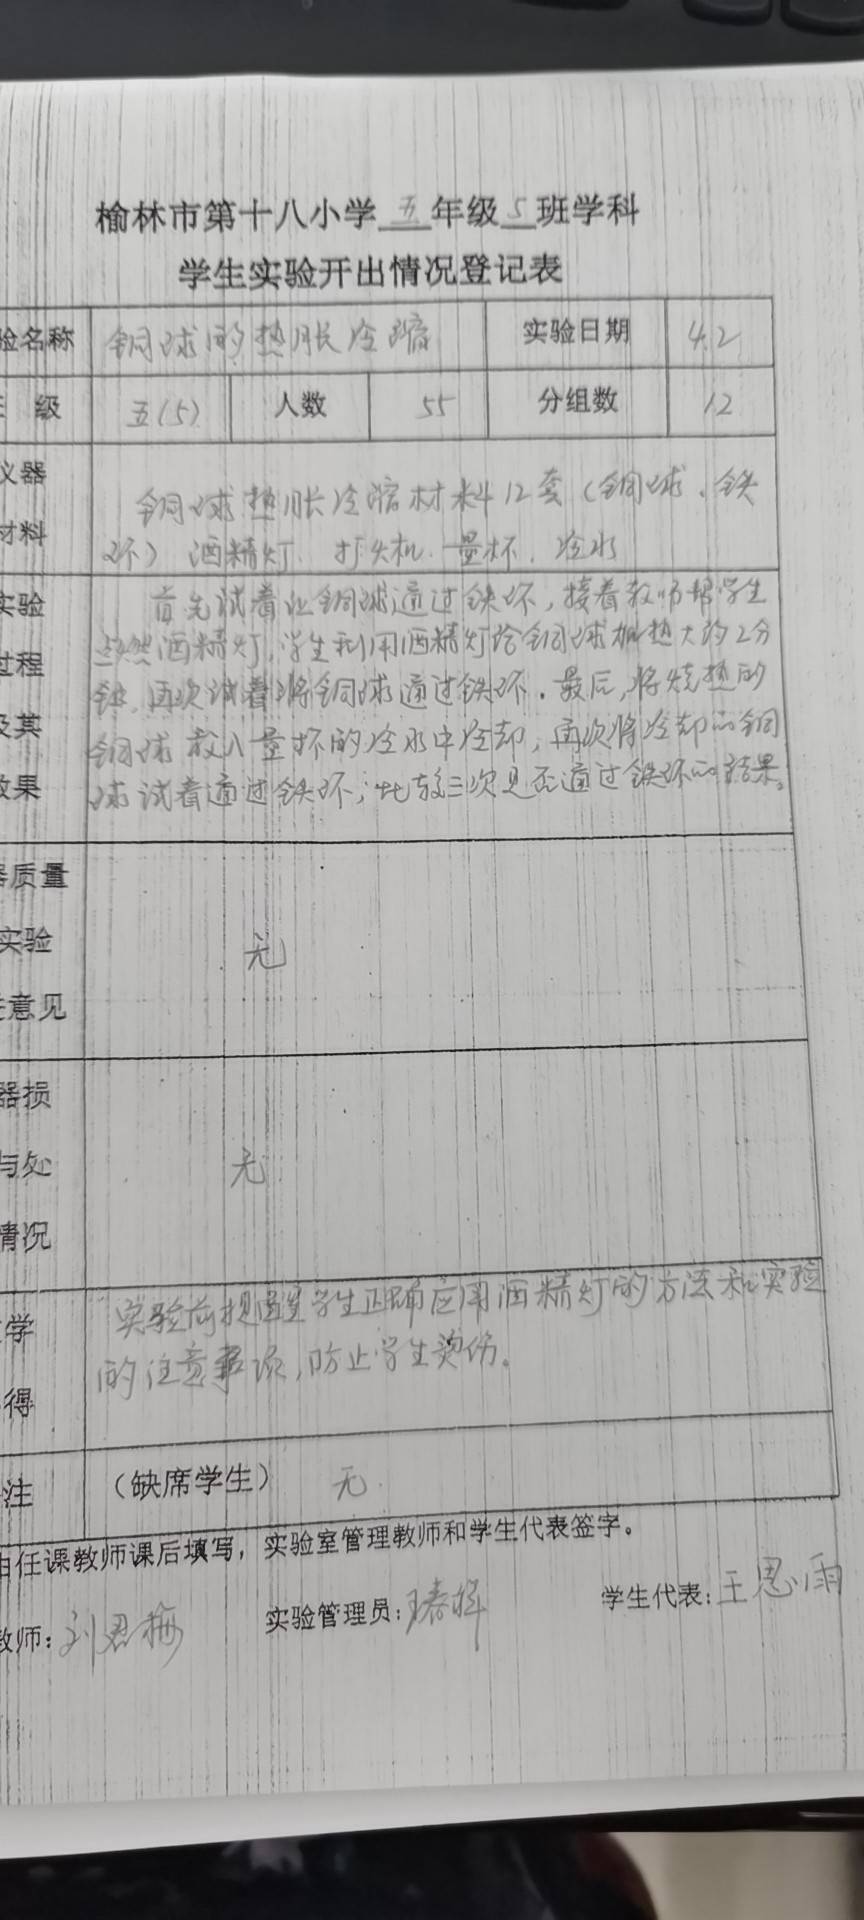 榆林市第十八小学五年级5班学科
学生实验开出情况登记表
验名称 铜球的热胀冷缩 实验日期 4.2
级 五(5) 人数 55 分组数 12
仪器
材料
铜球热胀冷缩材料12套(铜球、铁
环) 酒精灯、打火机、量杯、冷水
实验
过程
及其
效果
首先试着让铜球通过铁环,接着教师帮学生
点燃酒精灯,学生利用酒精灯给铜球加热大约2分
钟,再次试着将铜球通过铁环。最后,将烧热的
铜球放入量杯的冷水中冷却,再次将冷却的铜
球试着通过铁环,比较三次是否通过铁环的结果。
器质量
实验
意见
无
器损
与处
情况
无
学
得
实验前提醒学生正确应用酒精灯的方法和实验
的注意事项,防止学生烫伤。
注 (缺席学生) 无
由任课教师课后填写,实验室管理教师和学生代表签字。
教师: 实验管理员: 学生代表:王思雨